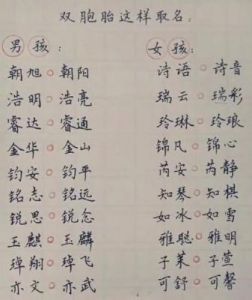 双胞胎这样取名。
男孩： 女孩：
朝旭 朝阳 诗语 诗音
浩明 浩亮 瑞云 瑞彩
睿达 睿通 玲琳 玲琅
金华 金山 锦凡 锦心
钧安 钧平 芮安 芮静
铭志 铭远 知琴 知棋
锐思 锐念 如冰 如雪
玉麒 玉麟 雅聪 雅明
璋翔 璋飞 子茉 子萱
亦文 亦武 可舒 可馨